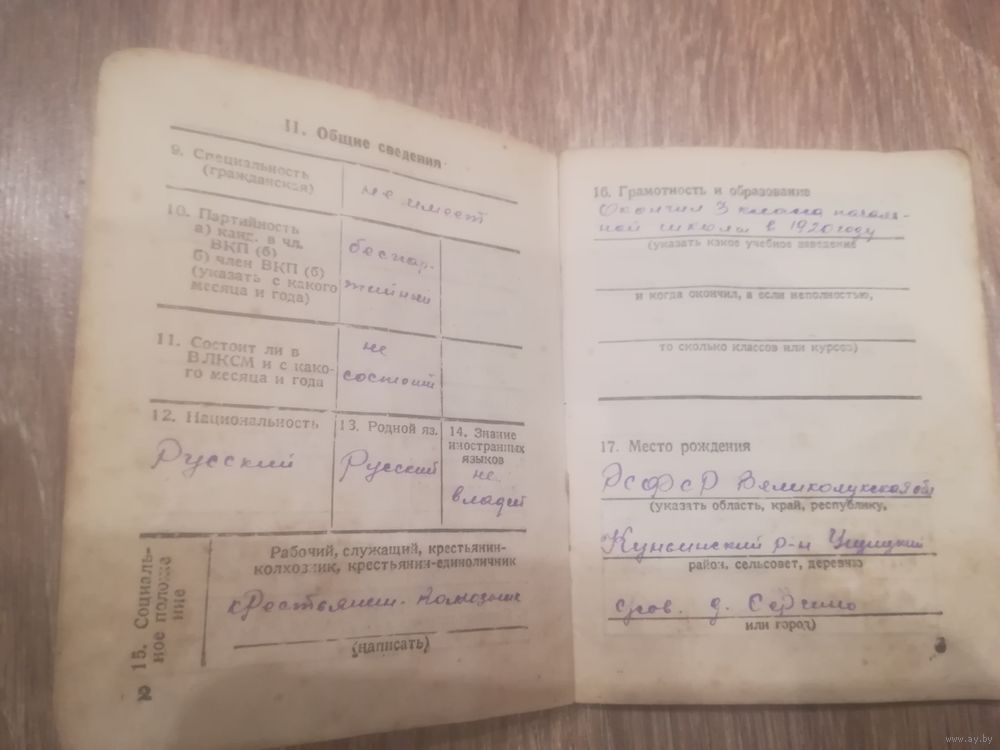 II. Общие сведения
9. Специальность
(гражданская)
не имеет
10. Партийность
а) канд. в чл.
ВКП (б)
б) член ВКП (б)
(указать с какого
месяца и года)
беспар-
тийный
11. Состоит ли в
ВЛКСМ и с како-
го месяца и года
не
состоит
12. Национальность
Русский
13. Родной яз.
Русский
14. Знание
иностранных
языков
не
владеет
15. Социаль-
ное положе-
ние
Рабочий, служащий, крестьянин-
колхозник, крестьянин-единоличник
крестьянин. колхозник
(написать)
2
16. Грамотность и образование
Окончил 3 класса началь-
ной школы в 1920 году
(указать какое учебное заведение
и когда окончил, а если неполностью,
то сколько классов или курсов)
17. Место рождения
РСФСР Великолукская обл
(указать область, край, республику,
Куньинский р-н
район, сельсовет, деревню
д.
или город)
3
www.ay.by